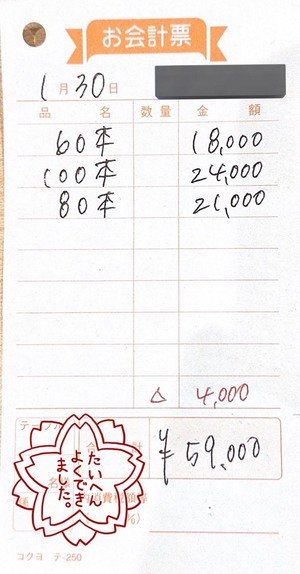 お会計票
1月30日
品名 数量 金額
60本 18,000
100本 24,000
80本 21,000
△ 4,000
¥59,000
たいへん
よくでき
ました。
コクヨ テ-250